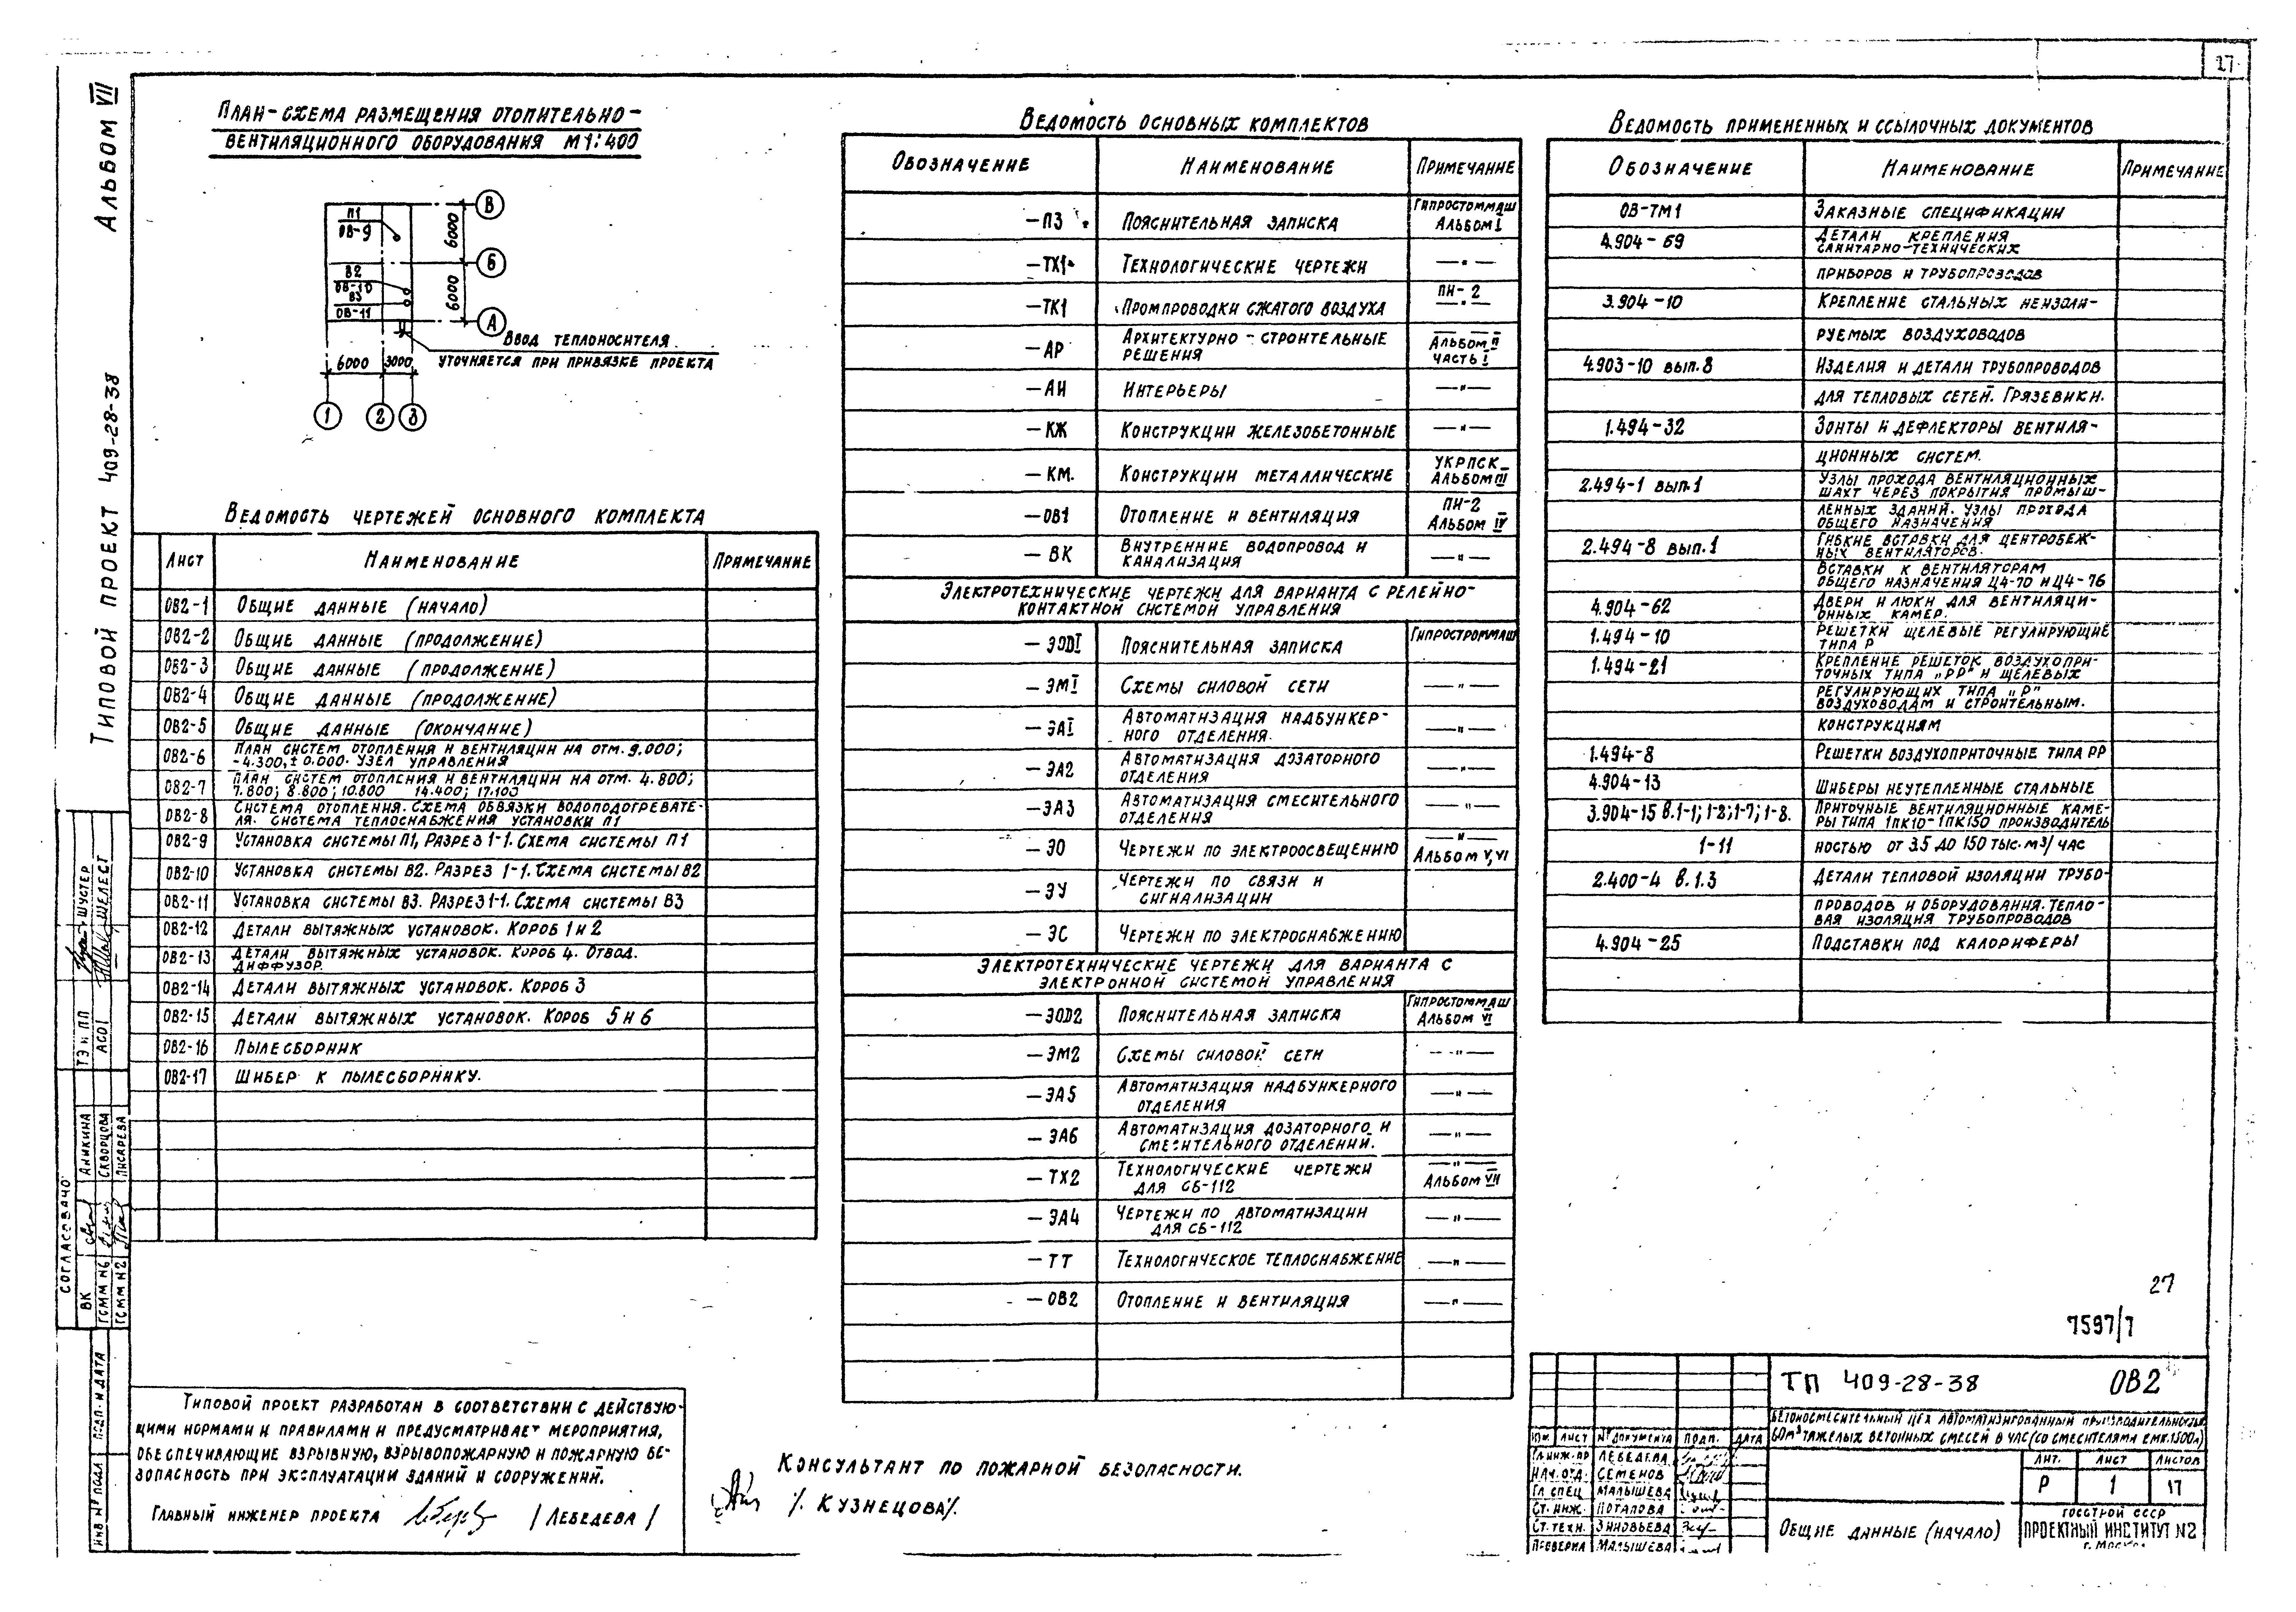 27
Альбом VII
Типовой проект 409-28-38
План-схема размещения отопительно-
вентиляционного оборудования М 1:400
П1
ОВ-9
В2
ОВ-10
В3
ОВ-11
В
Б
А
6000
6000
Ввод теплоносителя
уточняется при привязке проекта
6000 3000
1 2 3
Ведомость чертежей основного комплекта
Лист Наименование Примечание
ОВ2-1 Общие данные (начало)
ОВ2-2 Общие данные (продолжение)
ОВ2-3 Общие данные (продолжение)
ОВ2-4 Общие данные (продолжение)
ОВ2-5 Общие данные (окончание)
ОВ2-6 План систем отопления и вентиляции на отм. 9.000;
-4.300, ± 0.000. Узел управления
ОВ2-7 План систем отопления и вентиляции на отм. 4.800;
7.800; 8.800; 10.800 14.400; 17.100
ОВ2-8 Система отопления. Схема обвязки водоподогревате-
ля. Система теплоснабжения установки П1
ОВ2-9 Установка системы П1, Разрез 1-1. Схема системы П1
ОВ2-10 Установка системы В2. Разрез 1-1. Схема системы В2
ОВ2-11 Установка системы В3. Разрез 1-1. Схема системы В3
ОВ2-12 Детали вытяжных установок. Короб 1 и 2
ОВ2-13 Детали вытяжных установок. Короб 4. Отвод.
Диффузор.
ОВ2-14 Детали вытяжных установок. Короб 3
ОВ2-15 Детали вытяжных установок. Короб 5 и 6
ОВ2-16 Пылесборник
ОВ2-17 Шибер к пылесборнику.
Типовой проект разработан в соответствии с действую-
щими нормами и правилами и предусматривает мероприятия,
обеспечивающие взрывную, взрывопожарную и пожарную бе-
зопасность при эксплуатации зданий и сооружений.
Главный инженер проекта /Лебедева/
Консультант по пожарной безопасности.
/Кузнецова/.
Ведомость основных комплектов
Обозначение Наименование Примечание
-ПЗ Пояснительная записка Гипростоммаш
Альбом I
-ТХ1 Технологические чертежи —"—
-ТК1 Промпроводки сжатого воздуха ПИ-2
—"—
-АР Архитектурно-строительные
решения Альбом II
часть I
-АИ Интерьеры —"—
-КЖ Конструкции железобетонные —"—
-КМ. Конструкции металлические УКРПСК
Альбом III
-ОВ1 Отопление и вентиляция ПИ-2
Альбом IV
-ВК Внутренние водопровод и
канализация —"—
Электротехнические чертежи для варианта с релейно-
контактной системой управления
-ЭОД1 Пояснительная записка Гипростроммаш
-ЭМ1 Схемы силовой сети —"—
-ЭА1 Автоматизация надбункер-
ного отделения. —"—
-ЭА2 Автоматизация дозаторного
отделения —"—
-ЭА3 Автоматизация смесительного
отделения —"—
-ЭО Чертежи по электроосвещению —"—
Альбом V, VI
-ЭУ Чертежи по связи и
сигнализации
-ЭС Чертежи по электроснабжению
Электротехнические чертежи для варианта с
электронной системой управления
-ЭОД2 Пояснительная записка Гипростоммаш
Альбом VI
-ЭМ2 Схемы силовой сети —"—
-ЭА5 Автоматизация надбункерного
отделения —"—
-ЭА6 Автоматизация дозаторного и
смесительного отделений. —"—
-ТХ2 Технологические чертежи
для СБ-112 —"—
Альбом VII
-ЭА4 Чертежи по автоматизации
для СБ-112 —"—
-ТТ Технологическое теплоснабжение —"—
-ОВ2 Отопление и вентиляция —"—
Ведомость примененных и ссылочных документов
Обозначение Наименование Примечание
ОВ-7М1 Заказные спецификации
4.904-69 Детали крепления
санитарно-технических
приборов и трубопроводов
3.904-10 Крепление стальных неизоли-
руемых воздуховодов
4.903-10 вып.8 Изделия и детали трубопроводов
для тепловых сетей. Грязевики.
1.494-32 Зонты и дефлекторы вентиля-
ционных систем.
2.494-1 вып.1 Узлы прохода вентиляционных
шахт через покрытия промыш-
ленных зданий. Узлы прохода
общего назначения
2.494-8 вып.1 Гибкие вставки для центробеж-
ных вентиляторов.
Вставки к вентиляторам
общего назначения Ц4-70 и Ц4-76
4.904-62 Двери и люки для вентиляци-
онных камер.
1.494-10 Решетки щелевые регулирующие
типа Р
1.494-21 Крепление решеток воздухопри-
точных типа „РР" и щелевых
регулирующих типа „Р"
воздуховодам и строительным.
конструкциям
1.494-8 Решетки воздухоприточные типа РР
4.904-13 Шиберы неутепленные стальные
3.904-15 в.1-1; 1-2; 1-7; 1-8. Приточные вентиляционные каме-
ры типа 1ПК10-1ПК150 производитель
1-11 ностью от 3.5 до 150 тыс. м3/час
2.400-4 в.1.3 Детали тепловой изоляции трубо-
проводов и оборудования. Тепло-
вая изоляция трубопроводов
4.904-25 Подставки под калориферы
27
7597/7
ТП 409-28-38 ОВ2
Бетоносмесительный цех автоматизированный производительностью
60м³ тяжелых бетонных смесей в час (со смесителями емк. 1500л)
Изм. Лист № документа Подп. Дата
Гл.инж.пр Лебедева
Нач. отд. Семенов
Гл. спец. Малышева
Ст. инж. Потапова
Ст. техн. Зиновьева
Проверил Малышева
Лит. Лист Листов
Р 1 17
Общие данные (начало)
Госстрой СССР
Проектный институт №2
г. Москва
Согласовано:
ТЭ и ПП Шустер
АСО1 Шелест
ВК Аникина
ГСММ №6 Скворцова
ГСММ №2 Писарева
Инв № подл Подп. и дата